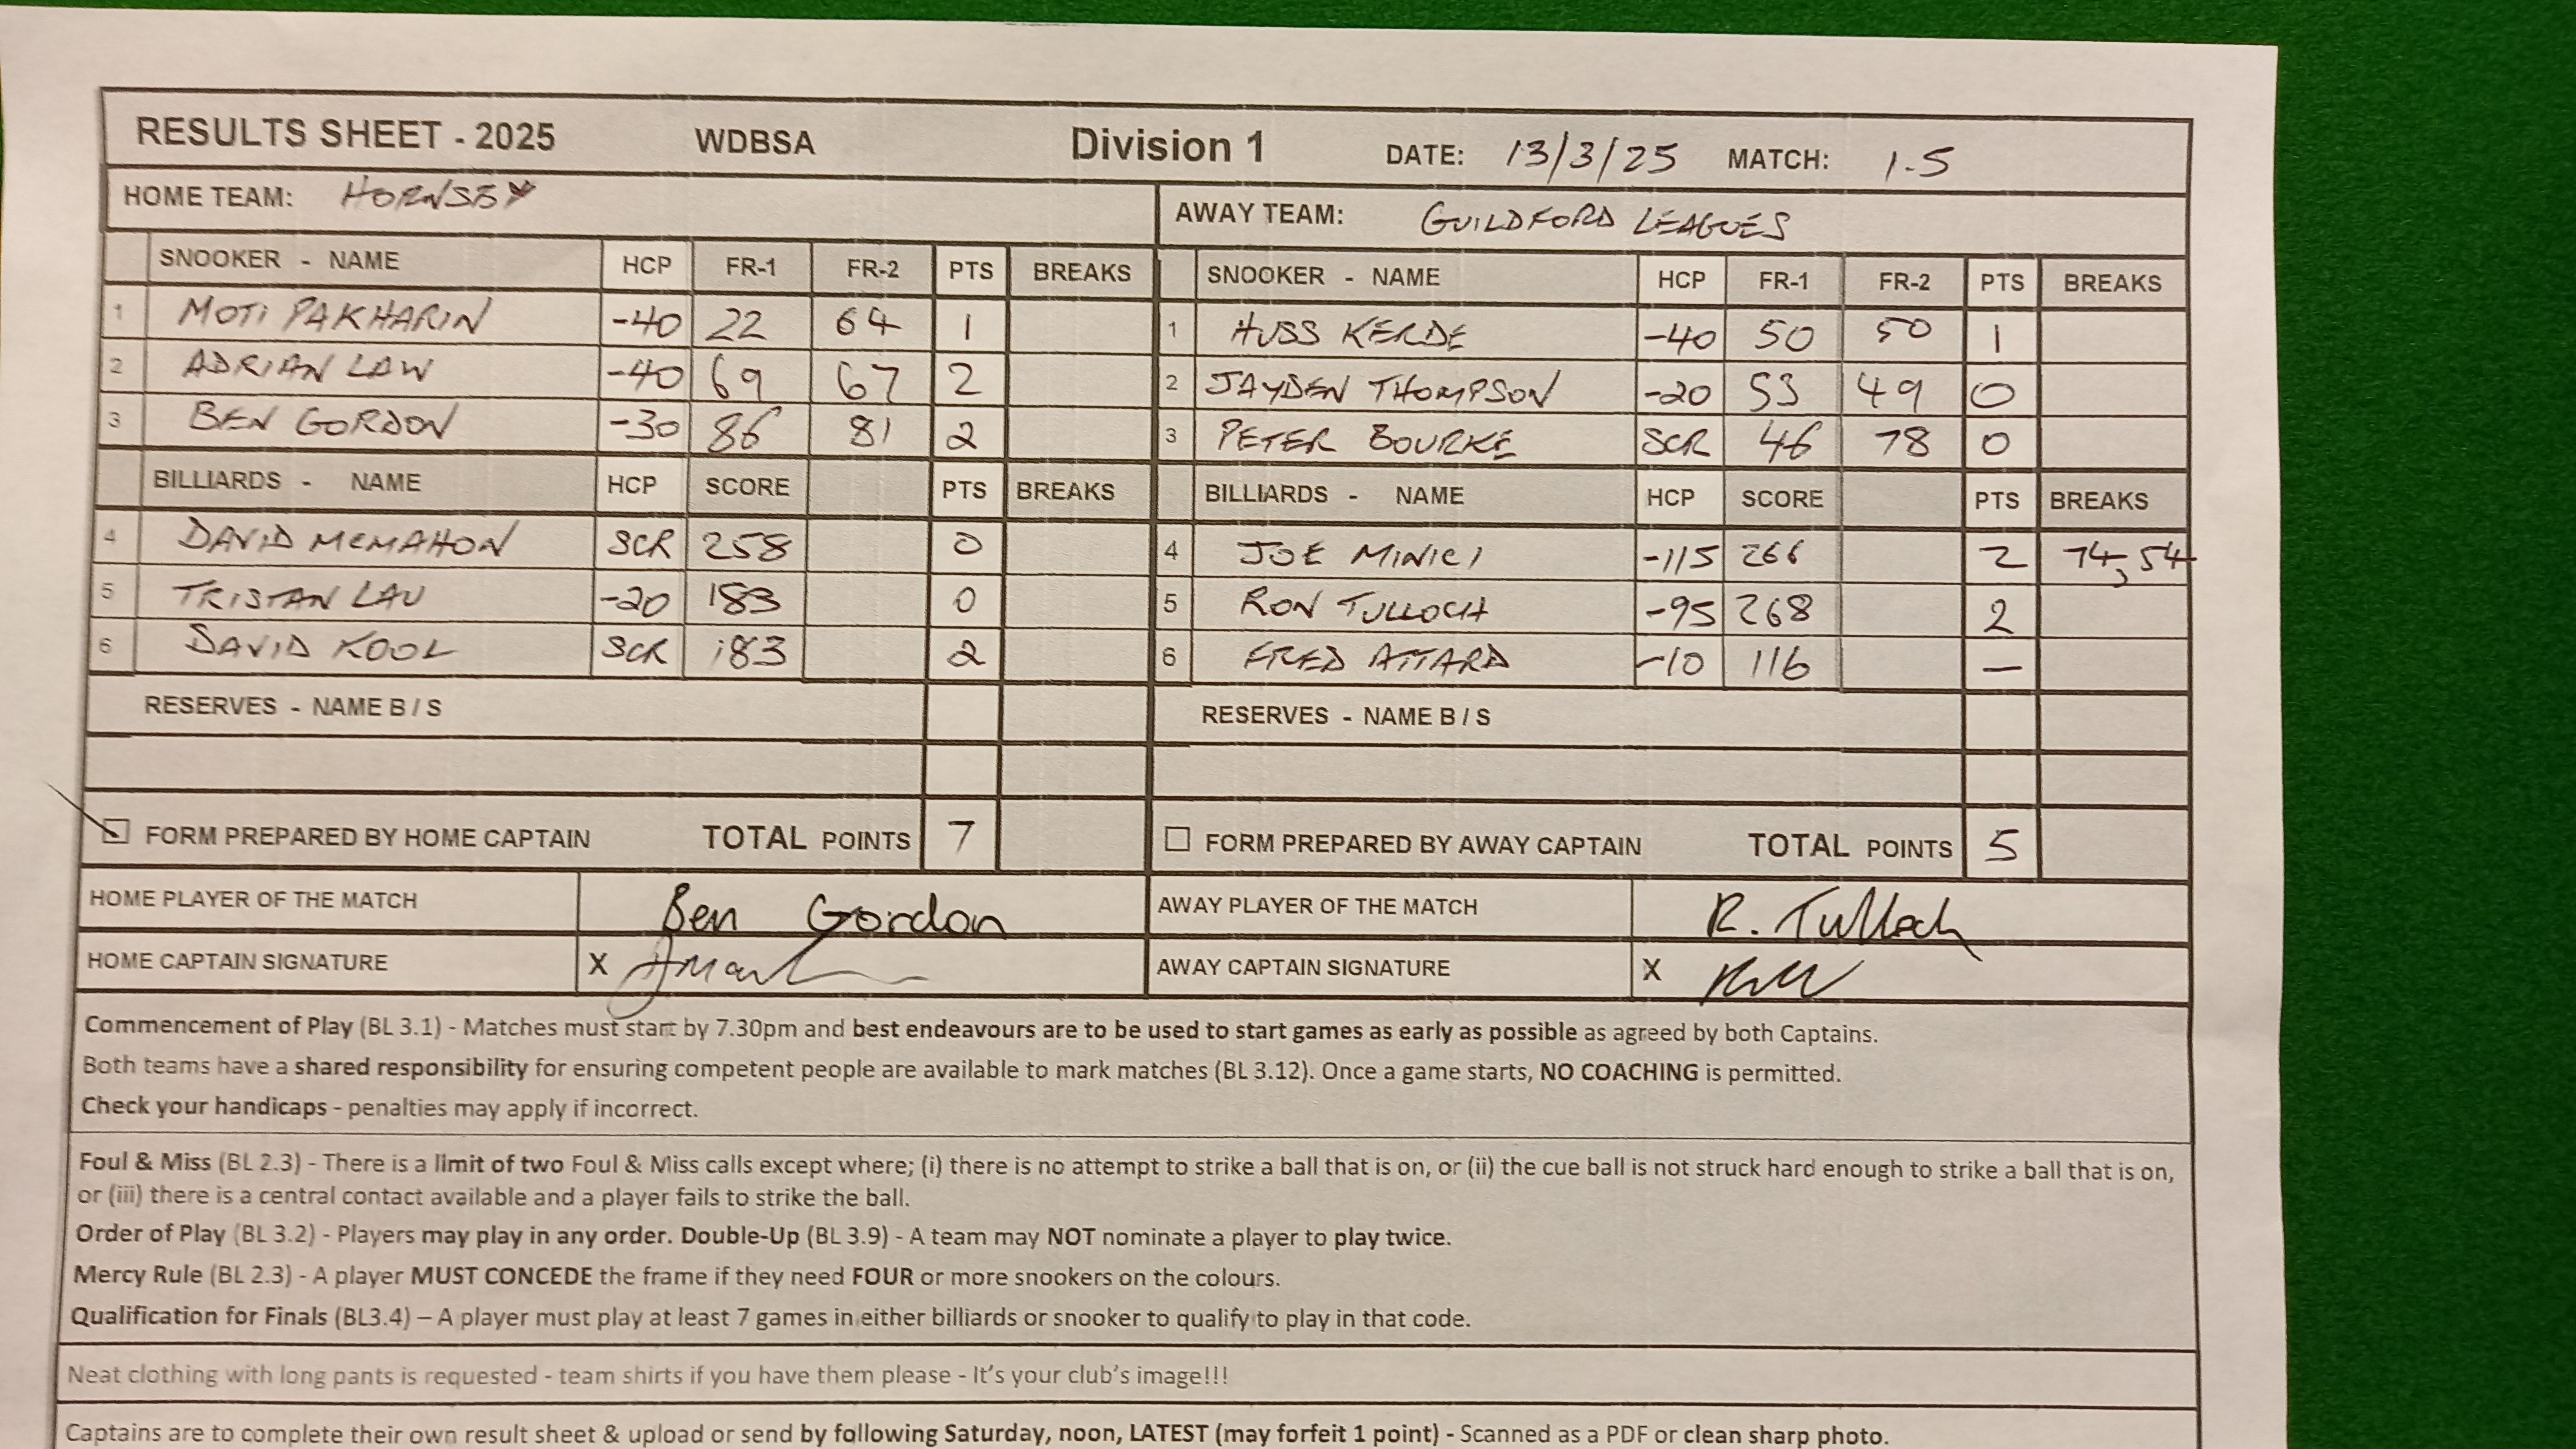 RESULTS SHEET - 2025 WDBSA Division 1 DATE: 13/3/25 MATCH: 1.5
HOME TEAM: HORNSBY AWAY TEAM: GUILDFORD LEAGUES
SNOOKER - NAME HCP FR-1 FR-2 PTS BREAKS SNOOKER - NAME HCP FR-1 FR-2 PTS BREAKS
1 MOTI PAKHARIN -40 22 64 1 1 HUSS KERDE -40 50 50 1
2 ADRIAN LAW -40 69 67 2 2 JAYDEN THOMPSON -20 53 49 0
3 BEN GORDON -30 86 81 2 3 PETER BOURKE SCR 46 78 0
BILLIARDS - NAME HCP SCORE PTS BREAKS BILLIARDS - NAME HCP SCORE PTS BREAKS
4 DAVID MCMAHON SCR 258 0 4 JOE MINICI -115 266 2 74, 54
5 TRISTAN LAU -20 183 0 5 RON TULLOCH -95 268 2
6 DAVID KOOL SCR 183 2 6 FRED ATTARD -10 116 —
RESERVES - NAME B / S RESERVES - NAME B / S
FORM PREPARED BY HOME CAPTAIN TOTAL POINTS 7 FORM PREPARED BY AWAY CAPTAIN TOTAL POINTS 5
HOME PLAYER OF THE MATCH Ben Gordon AWAY PLAYER OF THE MATCH R. Tulloch
HOME CAPTAIN SIGNATURE X AWAY CAPTAIN SIGNATURE X
Commencement of Play (BL 3.1) - Matches must start by 7.30pm and best endeavours are to be used to start games as early as possible as agreed by both Captains.
Both teams have a shared responsibility for ensuring competent people are available to mark matches (BL 3.12). Once a game starts, NO COACHING is permitted.
Check your handicaps - penalties may apply if incorrect.
Foul & Miss (BL 2.3) - There is a limit of two Foul & Miss calls except where; (i) there is no attempt to strike a ball that is on, or (ii) the cue ball is not struck hard enough to strike a ball that is on,
or (iii) there is a central contact available and a player fails to strike the ball.
Order of Play (BL 3.2) - Players may play in any order. Double-Up (BL 3.9) - A team may NOT nominate a player to play twice.
Mercy Rule (BL 2.3) - A player MUST CONCEDE the frame if they need FOUR or more snookers on the colours.
Qualification for Finals (BL3.4) – A player must play at least 7 games in either billiards or snooker to qualify to play in that code.
Neat clothing with long pants is requested - team shirts if you have them please - It's your club's image!!!
Captains are to complete their own result sheet & upload or send by following Saturday, noon, LATEST (may forfeit 1 point) - Scanned as a PDF or clean sharp photo.